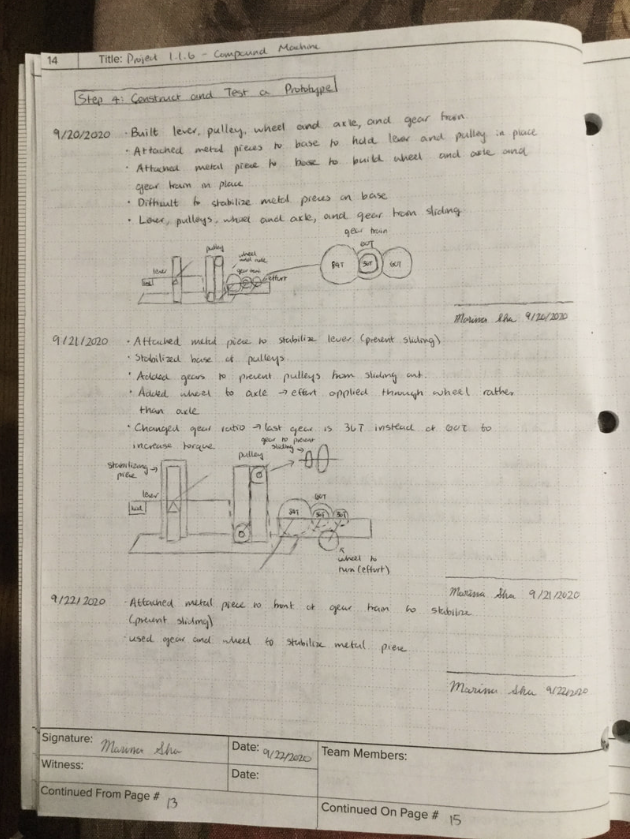 14 Title: Project 1.1.6 - Compound Machine
Step 4: Construct and Test a Prototype
9/20/2020 · Built lever, pulley, wheel and axle, and gear train
· Attached metal pieces to base to hold lever and pulley in place
· Attached metal piece to base to build wheel and axle and
gear train in place
· Difficult to stabilize metal pieces on base
· Lever, pulleys, wheel and axle, and gear train sliding
gear train
pulley
wheel and axle
lever
gear train
effort
60T
36T
60T
Marina Shu 9/20/2020
9/21/2020 · Attached metal piece to stabilize lever (prevent sliding)
· Stabilized base of pulleys
· Added gears to prevent pulleys from sliding out
· Added wheel to axle → effort applied through wheel rather
than axle
· Changed gear ratio → last gear is 36T instead of 60T to
increase torque
gear to prevent
sliding
stabilizing
piece
pulley
lever
60T
36T
36T
wheel to
turn (effort)
Marina Shu 9/21/2020
9/22/2020 · Attached metal piece to front of gear train to stabilize
(prevent sliding)
· used gear and wheel to stabilize metal piece
Marina Shu 9/22/2020
Signature: Marina Shu Date: 9/22/2020 Team Members:
Witness: Date:
Continued From Page # 13 Continued On Page # 15